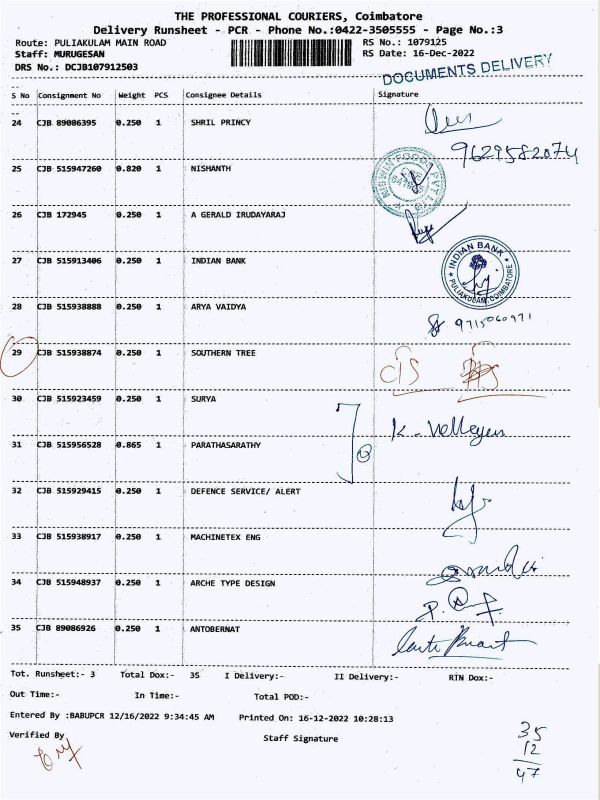 THE PROFESSIONAL COURIERS, Coimbatore
Delivery Runsheet - PCR - Phone No.:0422-3505555 - Page No.:3
Route: PULIAKULAM MAIN ROAD RS No.: 1079125
Staff: MURUGESAN RS Date: 16-Dec-2022
DRS No.: DCJB107912503
DOCUMENTS DELIVERY
S No Consignment No Weight PCS Consignee Details Signature
24 CJB 89086395 0.250 1 SHRIL PRINCY
9629582074
25 CJB 515947260 0.820 1 NISHANTH
26 CJB 172945 0.250 1 A GERALD IRUDAYARAJ
27 CJB 515913406 0.250 1 INDIAN BANK
INDIAN BANK
PULIAKULAM, COIMBATORE
28 CJB 515938888 0.250 1 ARYA VAIDYA
9715060971
29 CJB 515938874 0.250 1 SOUTHERN TREE
30 CJB 515923459 0.250 1 SURYA
31 CJB 515956528 0.865 1 PARATHASARATHY
32 CJB 515929415 0.250 1 DEFENCE SERVICE/ ALERT
33 CJB 515938917 0.250 1 MACHINETEX ENG
34 CJB 515948937 0.250 1 ARCHE TYPE DESIGN
35 CJB 89086926 0.250 1 ANTOBERNAT
Tot. Runsheet:- 3 Total Dox:- 35 I Delivery:- II Delivery:- RTN Dox:-
Out Time:- In Time:- Total POD:-
Entered By :BABUPCR 12/16/2022 9:34:45 AM Printed On: 16-12-2022 10:28:13
Verified By Staff Signature
35
12
47